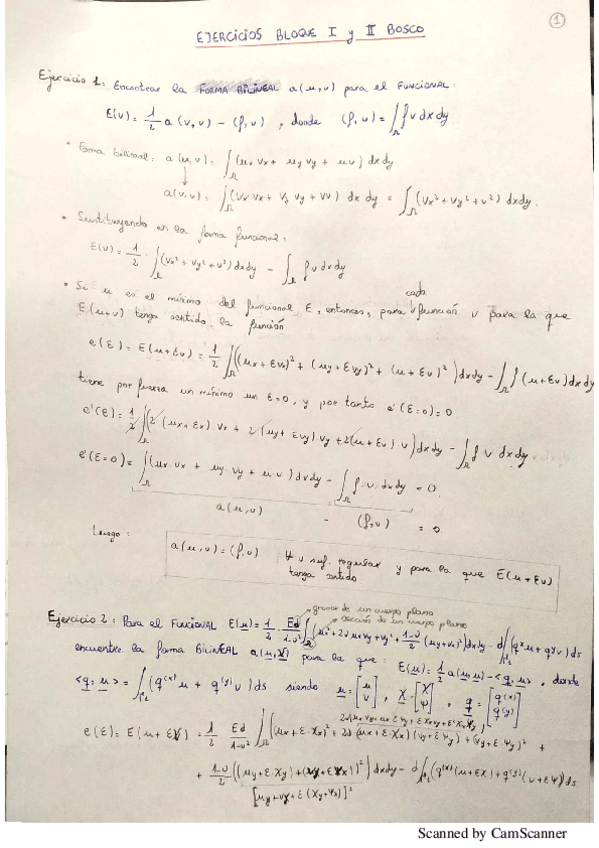 ①
EJERCICIOS BLOQUE I y II BOSCO
Ejercicio 1: Encontrar la FORMA BILINEAL a(u,v) para el FUNCIONAL:
E(v) = 1/2 a(v,v) - (f,v) , donde (f,v) = ∫_Ω f v dx dy
• Forma bilineal: a(u,v) = ∫_Ω (ux vx + uy vy + uv) dx dy
↓
a(v,v) = ∫_Ω (vx·vx + vy vy + vv) dx dy = ∫_Ω (vx² + vy² + v²) dx dy.
• Sustituyendo en la forma funcional:
E(v) = 1/2 · ∫_Ω (vx² + vy² + v²) dx dy - ∫_Ω f v dx dy
• Si u es el mínimo del funcional E, entonces, para cada función v para la que
E(u+v) tenga sentido, la función
e(ε) = E(u+εv) = 1/2 ∫_Ω ((ux + εvx)² + (uy + εvy)² + (u + εv)²) dx dy - ∫_Ω f (u+εv) dx dy
tiene por fuerza un mínimo en ε=0, y por tanto e'(ε=0)=0
e'(ε) = 1/2 ∫_Ω (2(ux + εx)·vx + 2(uy + εvy)·vy + 2(u+εv)·v) dx dy - ∫_Ω f v dx dy
e'(ε=0) = ∫_Ω (ux·vx + uy·vy + u·v) dx dy - ∫_Ω f·v·dx dy = 0
a(u,v) - (f,v) = 0
Luego: a(u,v) = (f,v) ∀ v suf. regular y para la que E(u+εv)
tenga sentido
grosor de un cuerpo plano
sección de un cuerpo plano
Ejercicio 2: Para el FUNCIONAL E(u) = 1/2 · Ed/1-ν² ∫_Ω (ux² + 2ν ux vy + vy² + 1-ν/2 (uy + vx)²) dx dy - d∫ (q^x u + q^y v) ds
encuentre la forma BILINEAL a(u,χ) para la que: E(u) = 1/2 a(u,u) - <q,u>, donde
<q,u> = ∫ (q^(x) u + q^(y) v) ds siendo u = [u v], χ = [χ ψ], q = [q^(x) q^(y)]
e(ε) = E(u+εχ) = 1/2 Ed/1-ν² ∫_Ω ((ux + ε·χx)² + 2ν (ux + εχx)(vy + εψy) + (vy + εψy)² +
+ 1-ν/2 ((uy + εχy) + (vx + εψx))²) dx dy - d∫ (q^(x) (u+εχ) + q^(y) (v+εψ)) ds
[uy + vx + ε(χy + ψx)]²
Scanned by CamScanner